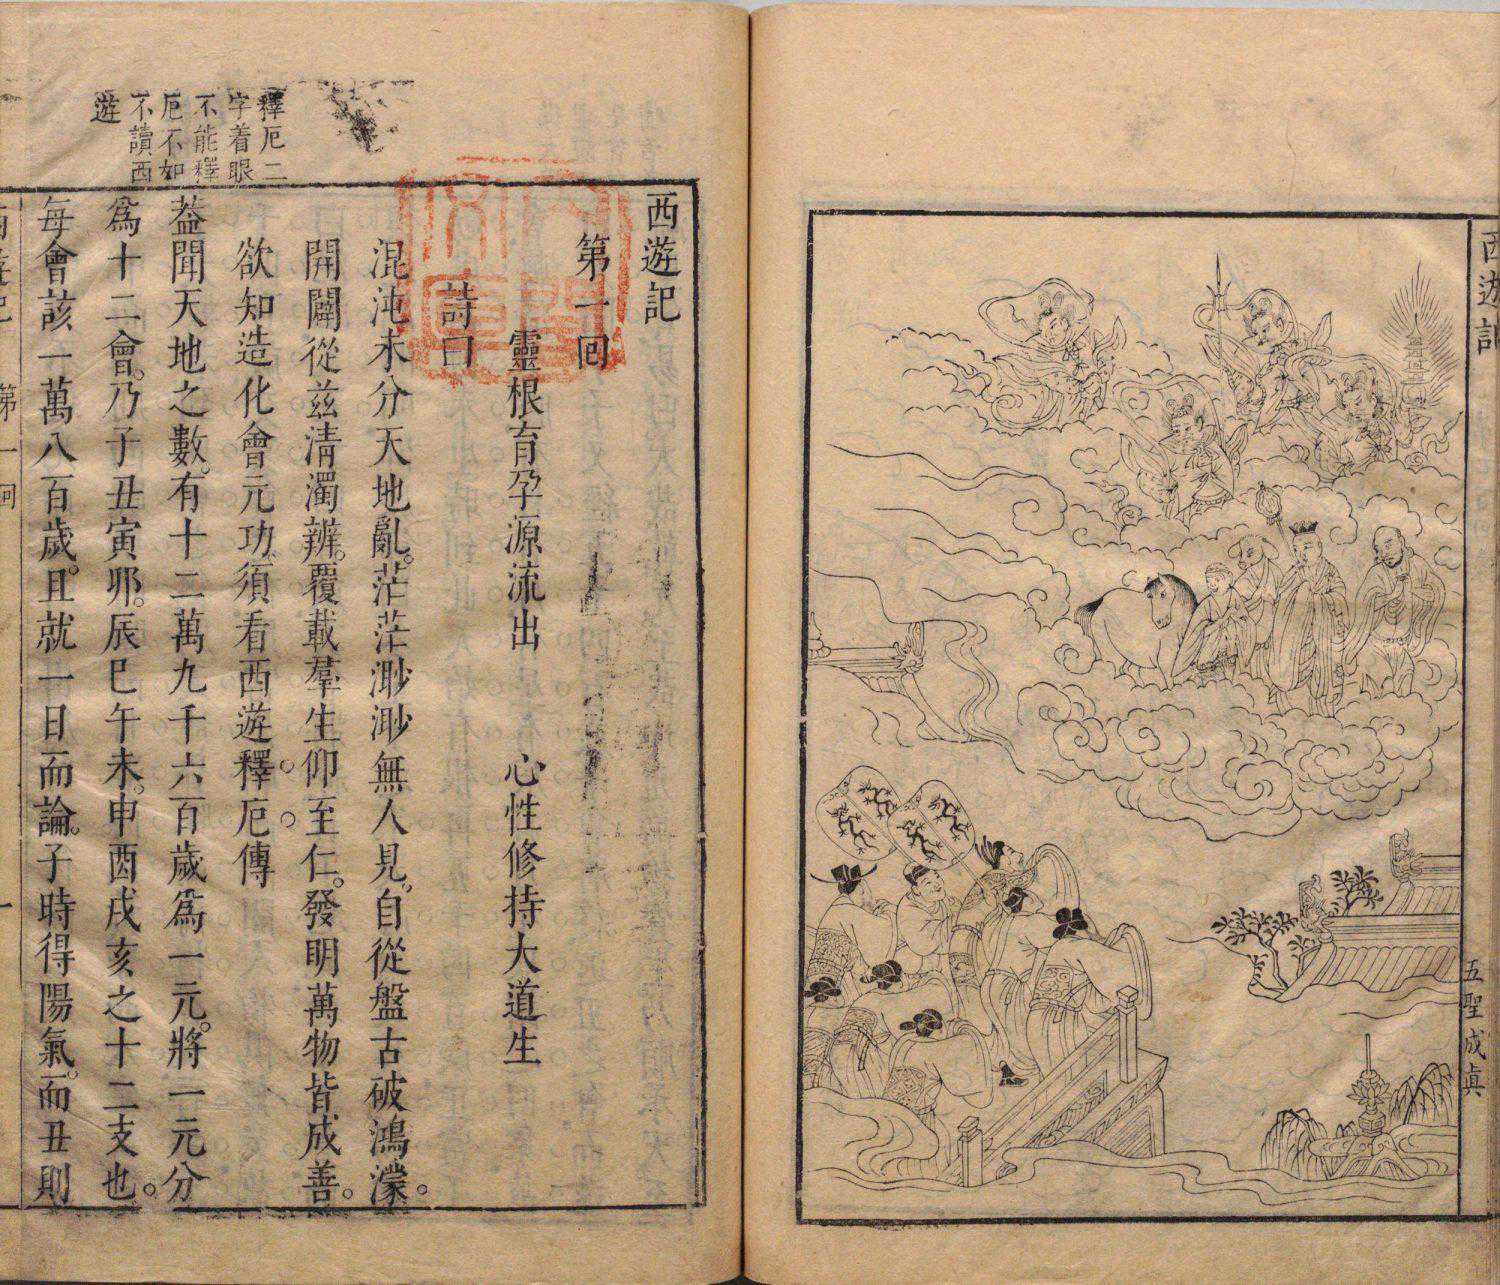 西遊記
五聖成真
西遊記
第一回
靈根育孕源流出 心性修持大道生
詩曰
混沌未分天地亂。茫茫渺渺無人見。自從盤古破鴻濛。
開闢從茲清濁辨。覆載羣生仰至仁。發明萬物皆成善。
欲知造化會元功、須看西遊釋厄傳
葢聞天地之數。有十二萬九千六百歲爲一元。將一元分
爲十二會。乃子丑寅夘。辰巳午未。申酉戌亥之十二支也。
每會該一萬八百歲。且就一日而論。子時得陽氣。而丑則
釋厄二
字着眼
不能釋
厄不如
不讀西
遊
西遊記 第一回 一